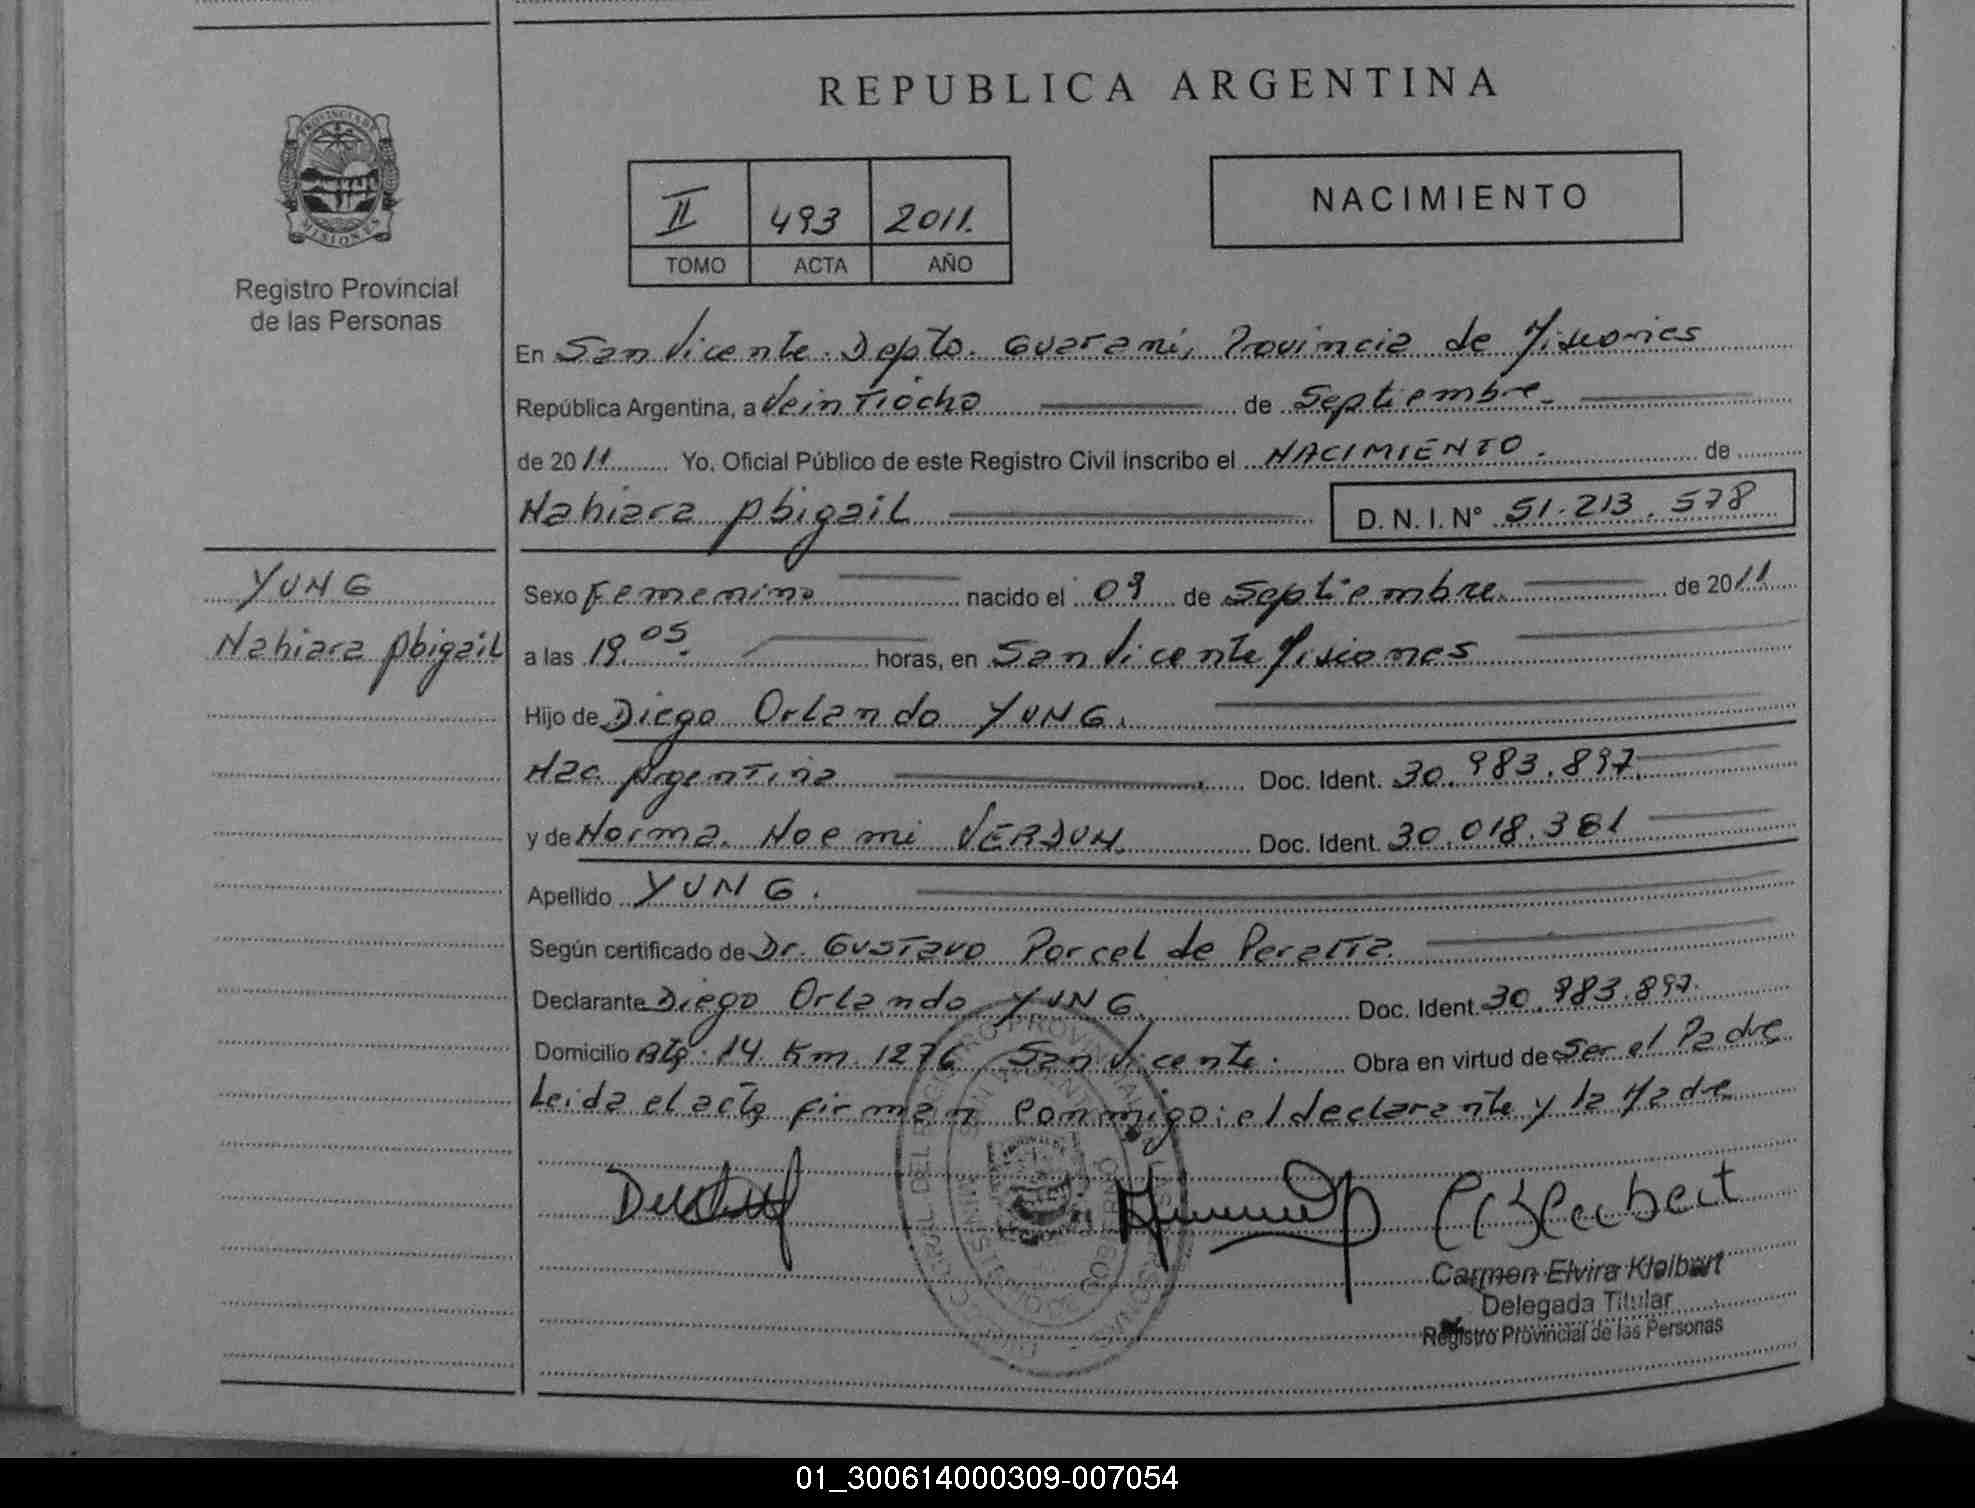 REPUBLICA ARGENTINA
PROVINCIA DE
MISIONES
Registro Provincial
de las Personas
II 493 2011.
TOMO ACTA AÑO
NACIMIENTO
En San Vicente. Depto. Guaraní, Provincia de Misiones
República Argentina, a Veintiocho de Septiembre.
de 2011 Yo, Oficial Público de este Registro Civil inscribo el NACIMIENTO. de
Nahiara Abigail D. N. I. N° 51.213.578
YUNG
Nahiara Abigail
Sexo Femenino nacido el 09 de Septiembre. de 2011
a las 19.05. horas, en San Vicente Misiones
Hijo de Diego Orlando YUNG.
Nac. Argentina Doc. Ident. 30.983.897.
y de Norma. Noemi VERDUN. Doc. Ident. 30.018.381
Apellido YUNG.
Según certificado de Dr. Gustavo Porcel de Peralta.
Declarante Diego Orlando YUNG. Doc. Ident. 30.983.897.
Domicilio Rta. 14 Km. 1276 San Vicente. Obra en virtud de Ser el Padre
Leida el acta firman conmigo: el declarante y la Madre
Carmen Elvira Kleibert
Delegada Titular
Registro Provincial de las Personas
01_300614000309-007054